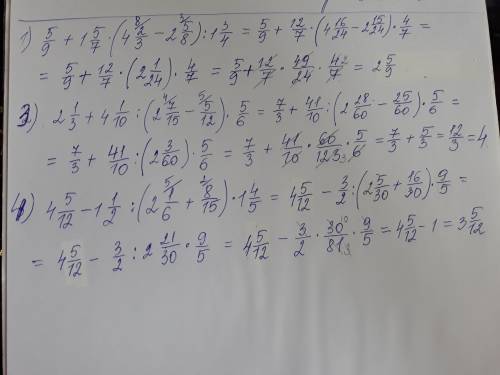 1) 5/9 + 1 5/7 · (4 2/3 − 2 5/8) : 1 3/4 = 5/9 + 12/7 · (4 16/24 − 2 15/24) · 4/7 =
= 5/9 + 12/7 · (2 1/24) · 4/7 = 5/9 + 12/7 · 49/24 · 4/7 = 2 5/9
3) 2 1/3 + 4 1/10 : (2 7/15 − 5/12) · 5/6 = 7/3 + 41/10 : (2 28/60 − 25/60) · 5/6 =
= 7/3 + 41/10 : (2 3/60) · 5/6 = 7/3 + 41/10 · 60/123 · 5/6 = 7/3 + 5/3 = 12/3 = 4
4) 4 5/12 − 1 1/2 : (2 1/6 + 8/15) · 1 4/5 = 4 5/12 − 3/2 : (2 5/30 + 16/30) · 9/5 =
= 4 5/12 − 3/2 : 2 21/30 · 9/5 = 4 5/12 − 3/2 · 30/81 · 9/5 = 4 5/12 − 1 = 3 5/12